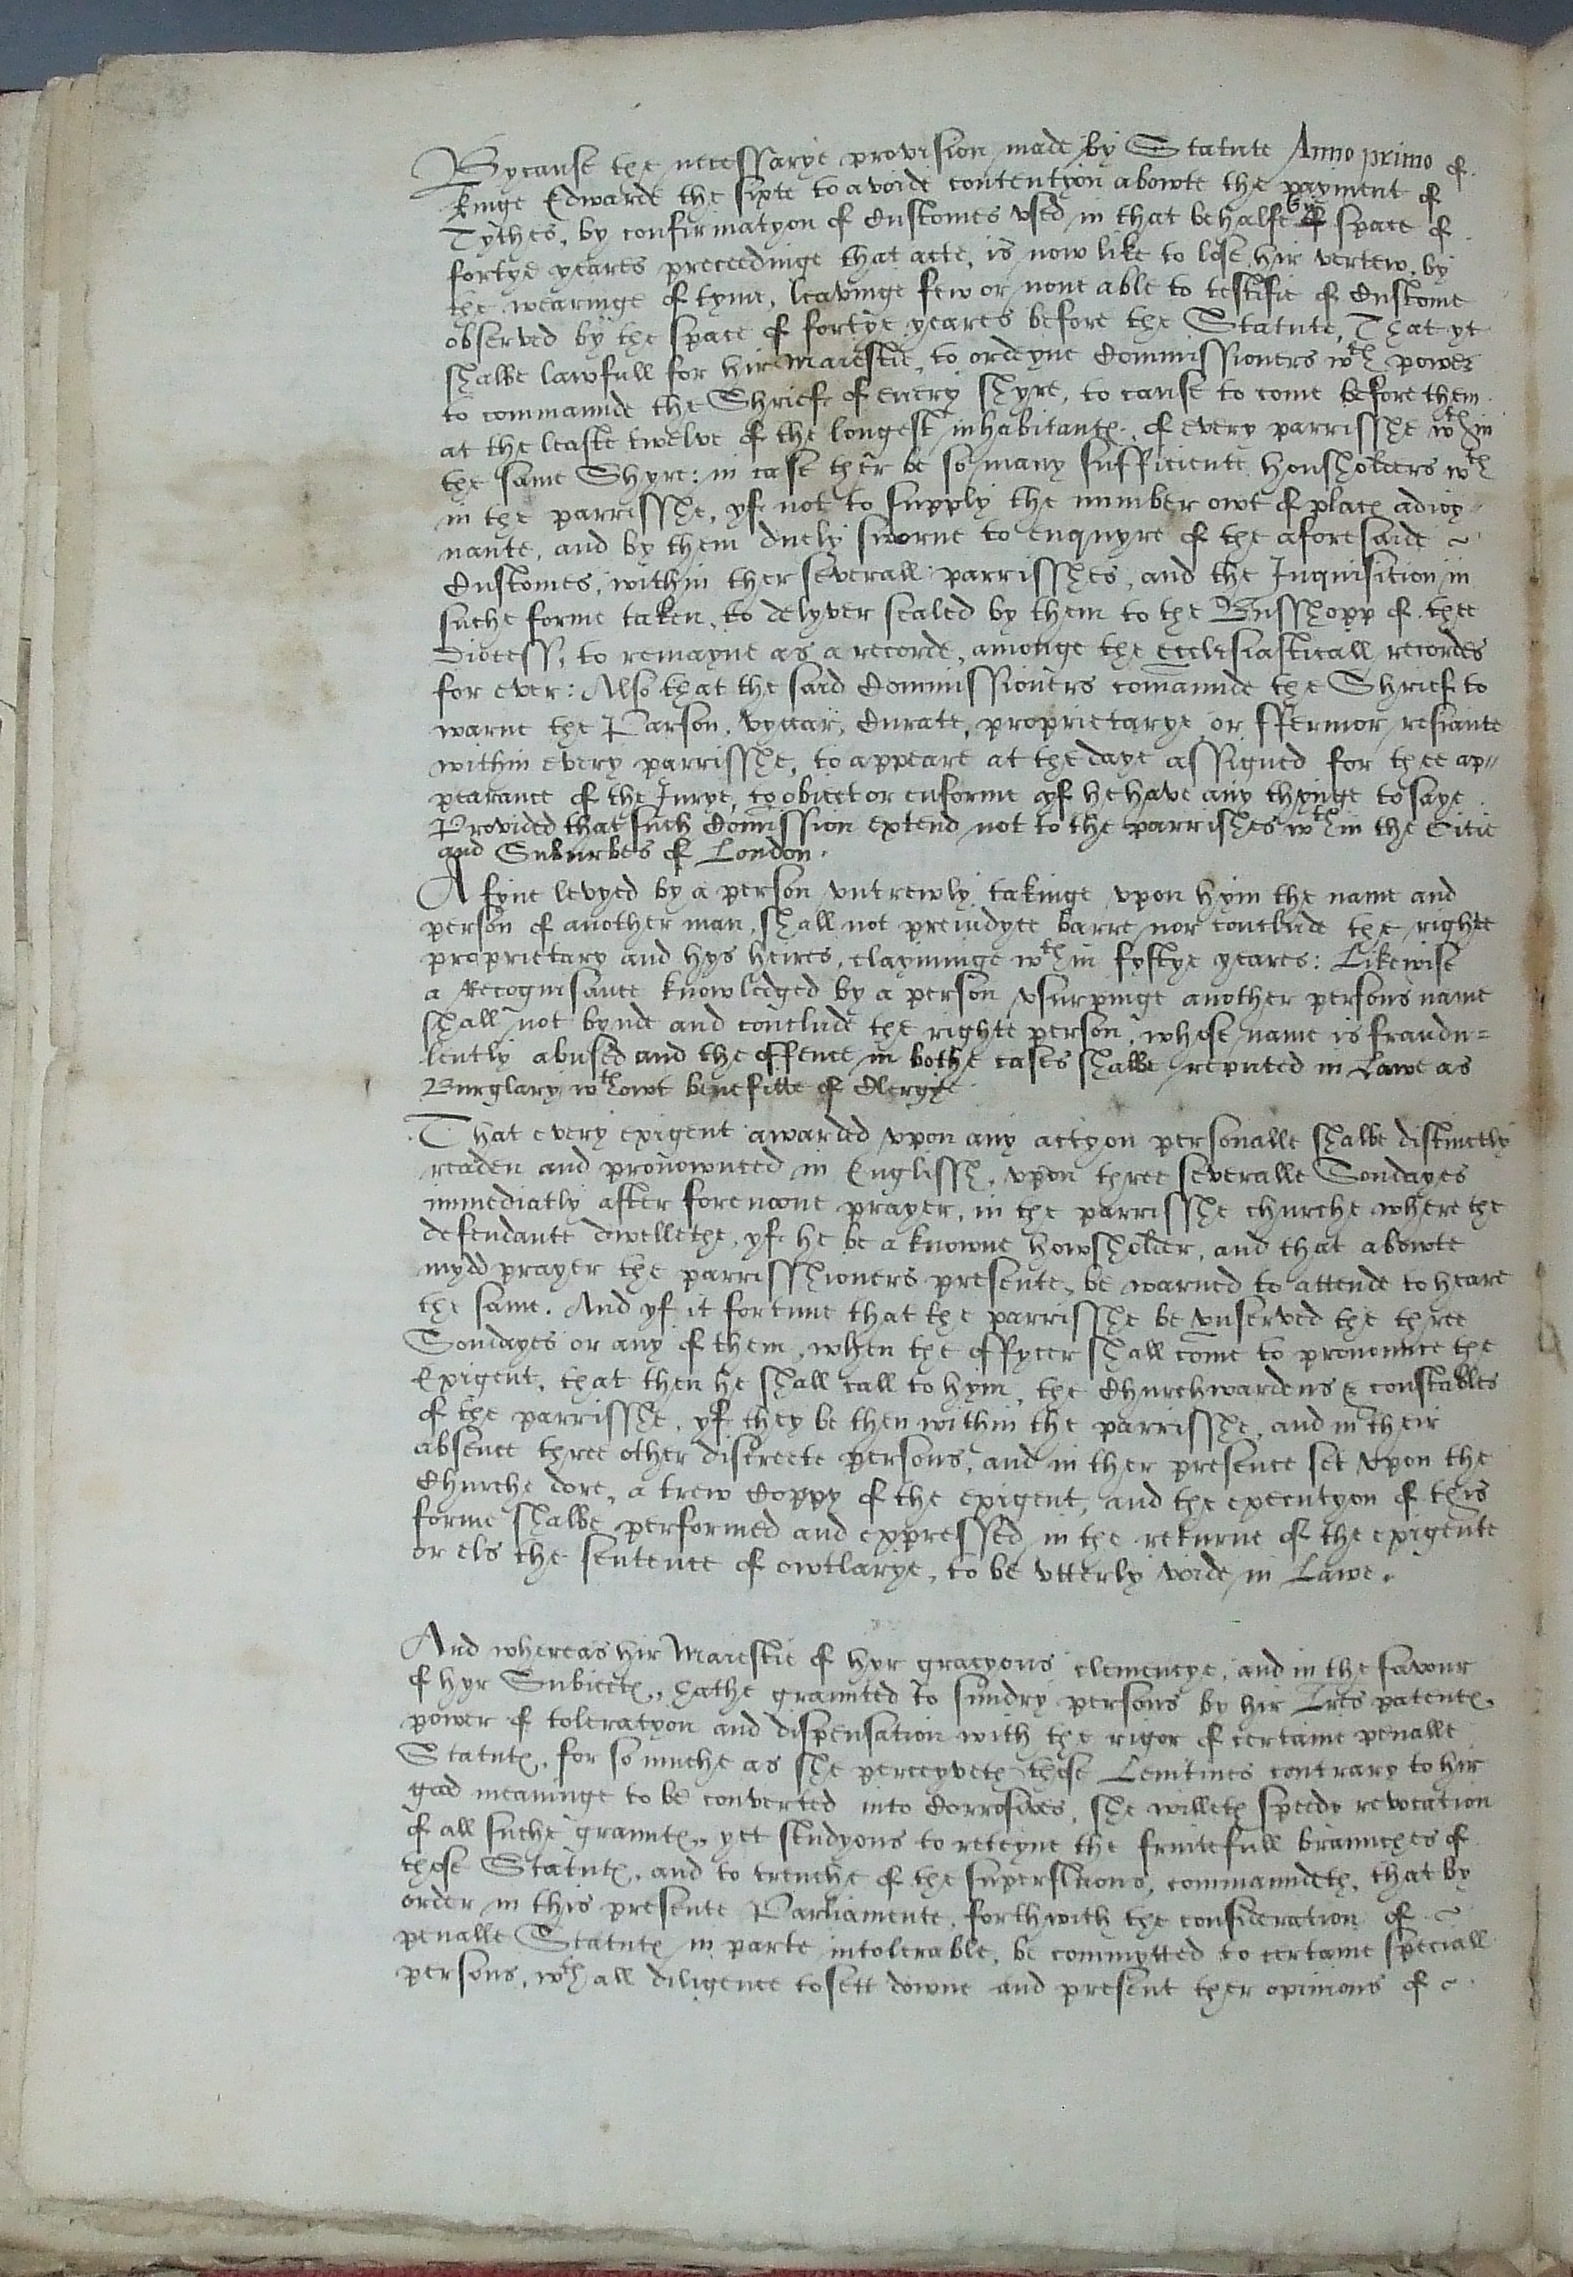 Bycause the necessarye provision made by Statute Anno primo of
kinge Edwarde the sixte to avoide contentyon abowte the payment of
Tythes, by confirmatyon of Customes vsed in that behalfe by space of
fortye yeares preceedinge that acte, is now like to lose hir vertew, by
the wearinge of tyme, leavinge few or none able to testifie of Custome
observed by the space of fortye yeares before the Statute, That yt
shalbe lawfull for hir Maiestie, to ordeyne Commissioners wth power
to commaunde the Shriefe of every shyre, to cause to come before them
at the leaste twelve of the longest inhabitantes, of every parrisshe wthin
the same Shyre: in case ther be so many sufficiente housholders wth
in the parrisshe, yf not to supply the number owt of places adioy
nante, and by them duely sworne to enquyre of the aforesaide
Customes, within ther severall parrisshes, and the Inquisicion in
suche forme taken, to delyver sealed by them to the Busshopp of thee
Diocess, to remayne as a recorde, amonge the ecclesiasticall recordes
for ever: Also that the said Commissioners comaunde the Shrief to
warne the Parson, vyccar, Curate, proprietarye or ffermor, resiante
within every parrisshe, to appeare at the daye assigned for thee ap"
pearance of the Jurye, to obiect or enforme yf he have any thynge to saye
Provided that such Comission extend not to the parrishes wthin the Citie
and Suburbes of London.
A fyne levyed by a person vntrewly takinge vpon hym the name and
person of another man, shall not preiudyce barre nor conclude the righte
proprietary and hys heires, clayminge wthin fyftye yeares: Likewise
a Recognisaunce knowledged by a person vsurpinge another persons name
shall not bynde and conclude the righte person, whose name is fraudu=
lently abused and the offence in bothe cases shalbe reputed in Lawe as
Burglary wthowt benefitte of Clergye
That every exigent awarded vpon any actyon personalle shalbe distinctly
readen and pronownced in Englissh, vpon three severalle Sondayes
immediatly after forenoone prayer, in the parrisshe churche where the
defendante dwellethe, yf he be a knowne howsholder, and that abowte
mydd prayer the parrisshioners presente, be warned to attende to heare
the same. And yf it fortune that the parrisshe be vnserved the three
Sondayes or any of them, when the offycer shall come to pronounce the
Exigent, that then he shall call to hym, the Churchwardens & constables
of the parrisshe, yf they be then within the parrisshe, and in their
absence three other discreete persons, and in ther presence set vpon the
Churche dore, a trew Coppy of the exigent, and the executyon of this
forme shalbe performed and expressed in the returne of the exigente
or els the sentence of owtlarye, to be vtterly voide in Lawe.
And whereas hir Maiestie of hyr gracyous clemencye, and in the favour
of hyr Subiectes, hathe graunted to sundry persons by hir lres patentes,
power of toleratyon and dispensation with the rigor of certaine penalle
Statutes, for so muche as she perceyveth those Lenitives contrary to hir
good meaninge to be converted into Corrosives, she willeth speedy revocation
of all suche grauntes, yet studyous to reteyne the fruitefull braunches of
those Statutes, and to trenche of the superfluous, commaundeth, that by
order in this presente Parliamente, forthwith the consideration of
penalle Statutes in parte intolerable, be commytted to certaine speciall
persons, wth all diligence to sett downe and present ther opinions of